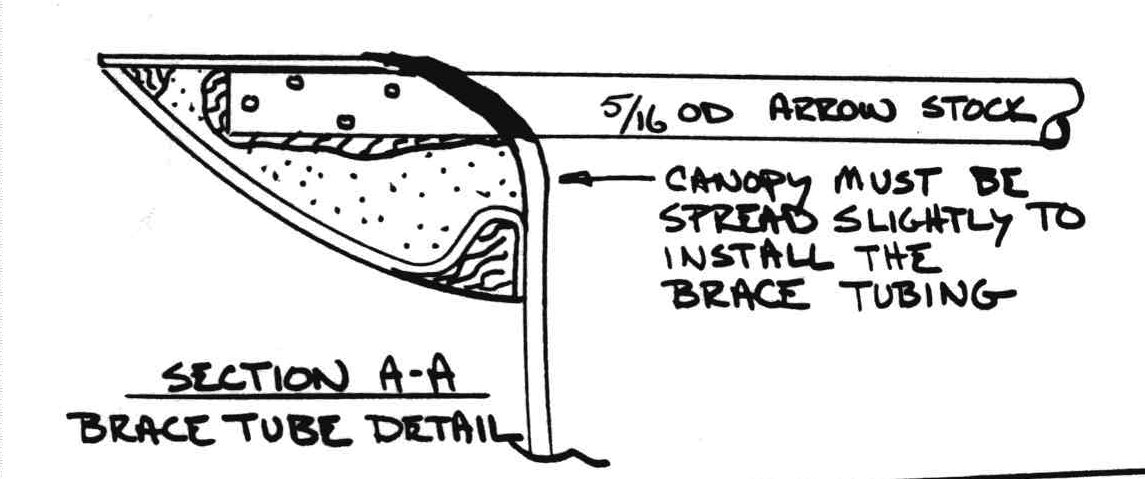 5/16 OD ARROW STOCK
CANOPY MUST BE
SPREAD SLIGHTLY TO
INSTALL THE
BRACE TUBING
SECTION A-A
BRACE TUBE DETAIL